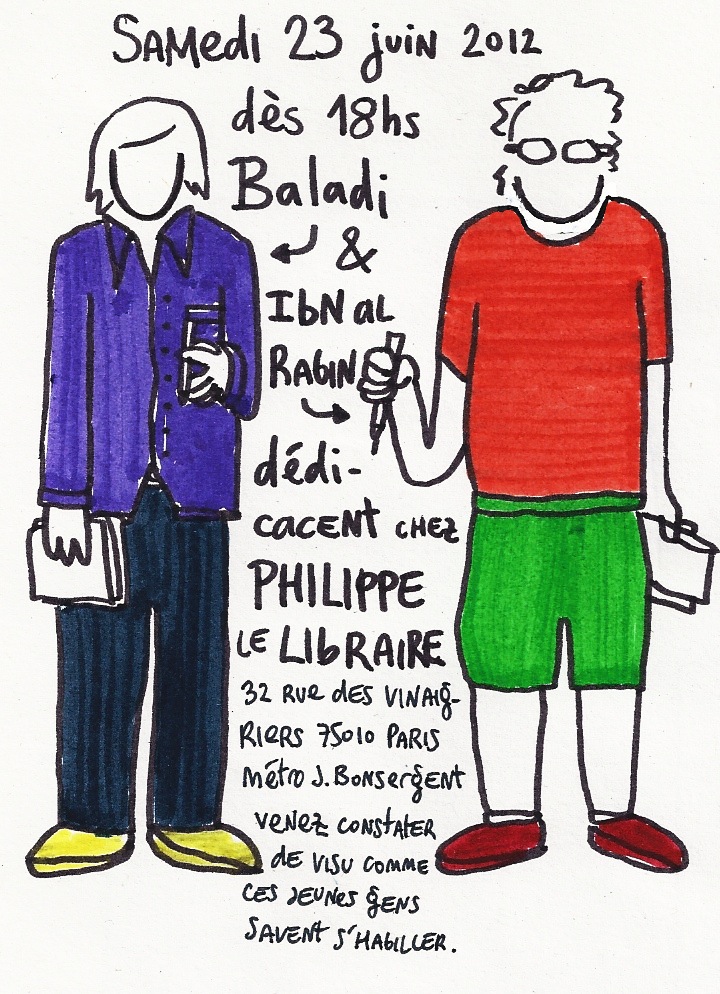 Samedi 23 juin 2012
dès 18hs
Baladi
&
IbN aL
RabiN
dédi-
cacent CHEZ
PHILIPPE
LE LIbRAIRE
32 RUe des VINAIg-
RieRs 75010 PARIS
métro J. Bonsergent
veNeZ CONStAteR
de visu comme
CES JEUNes gENS
SAVENt S'HAbILLER.